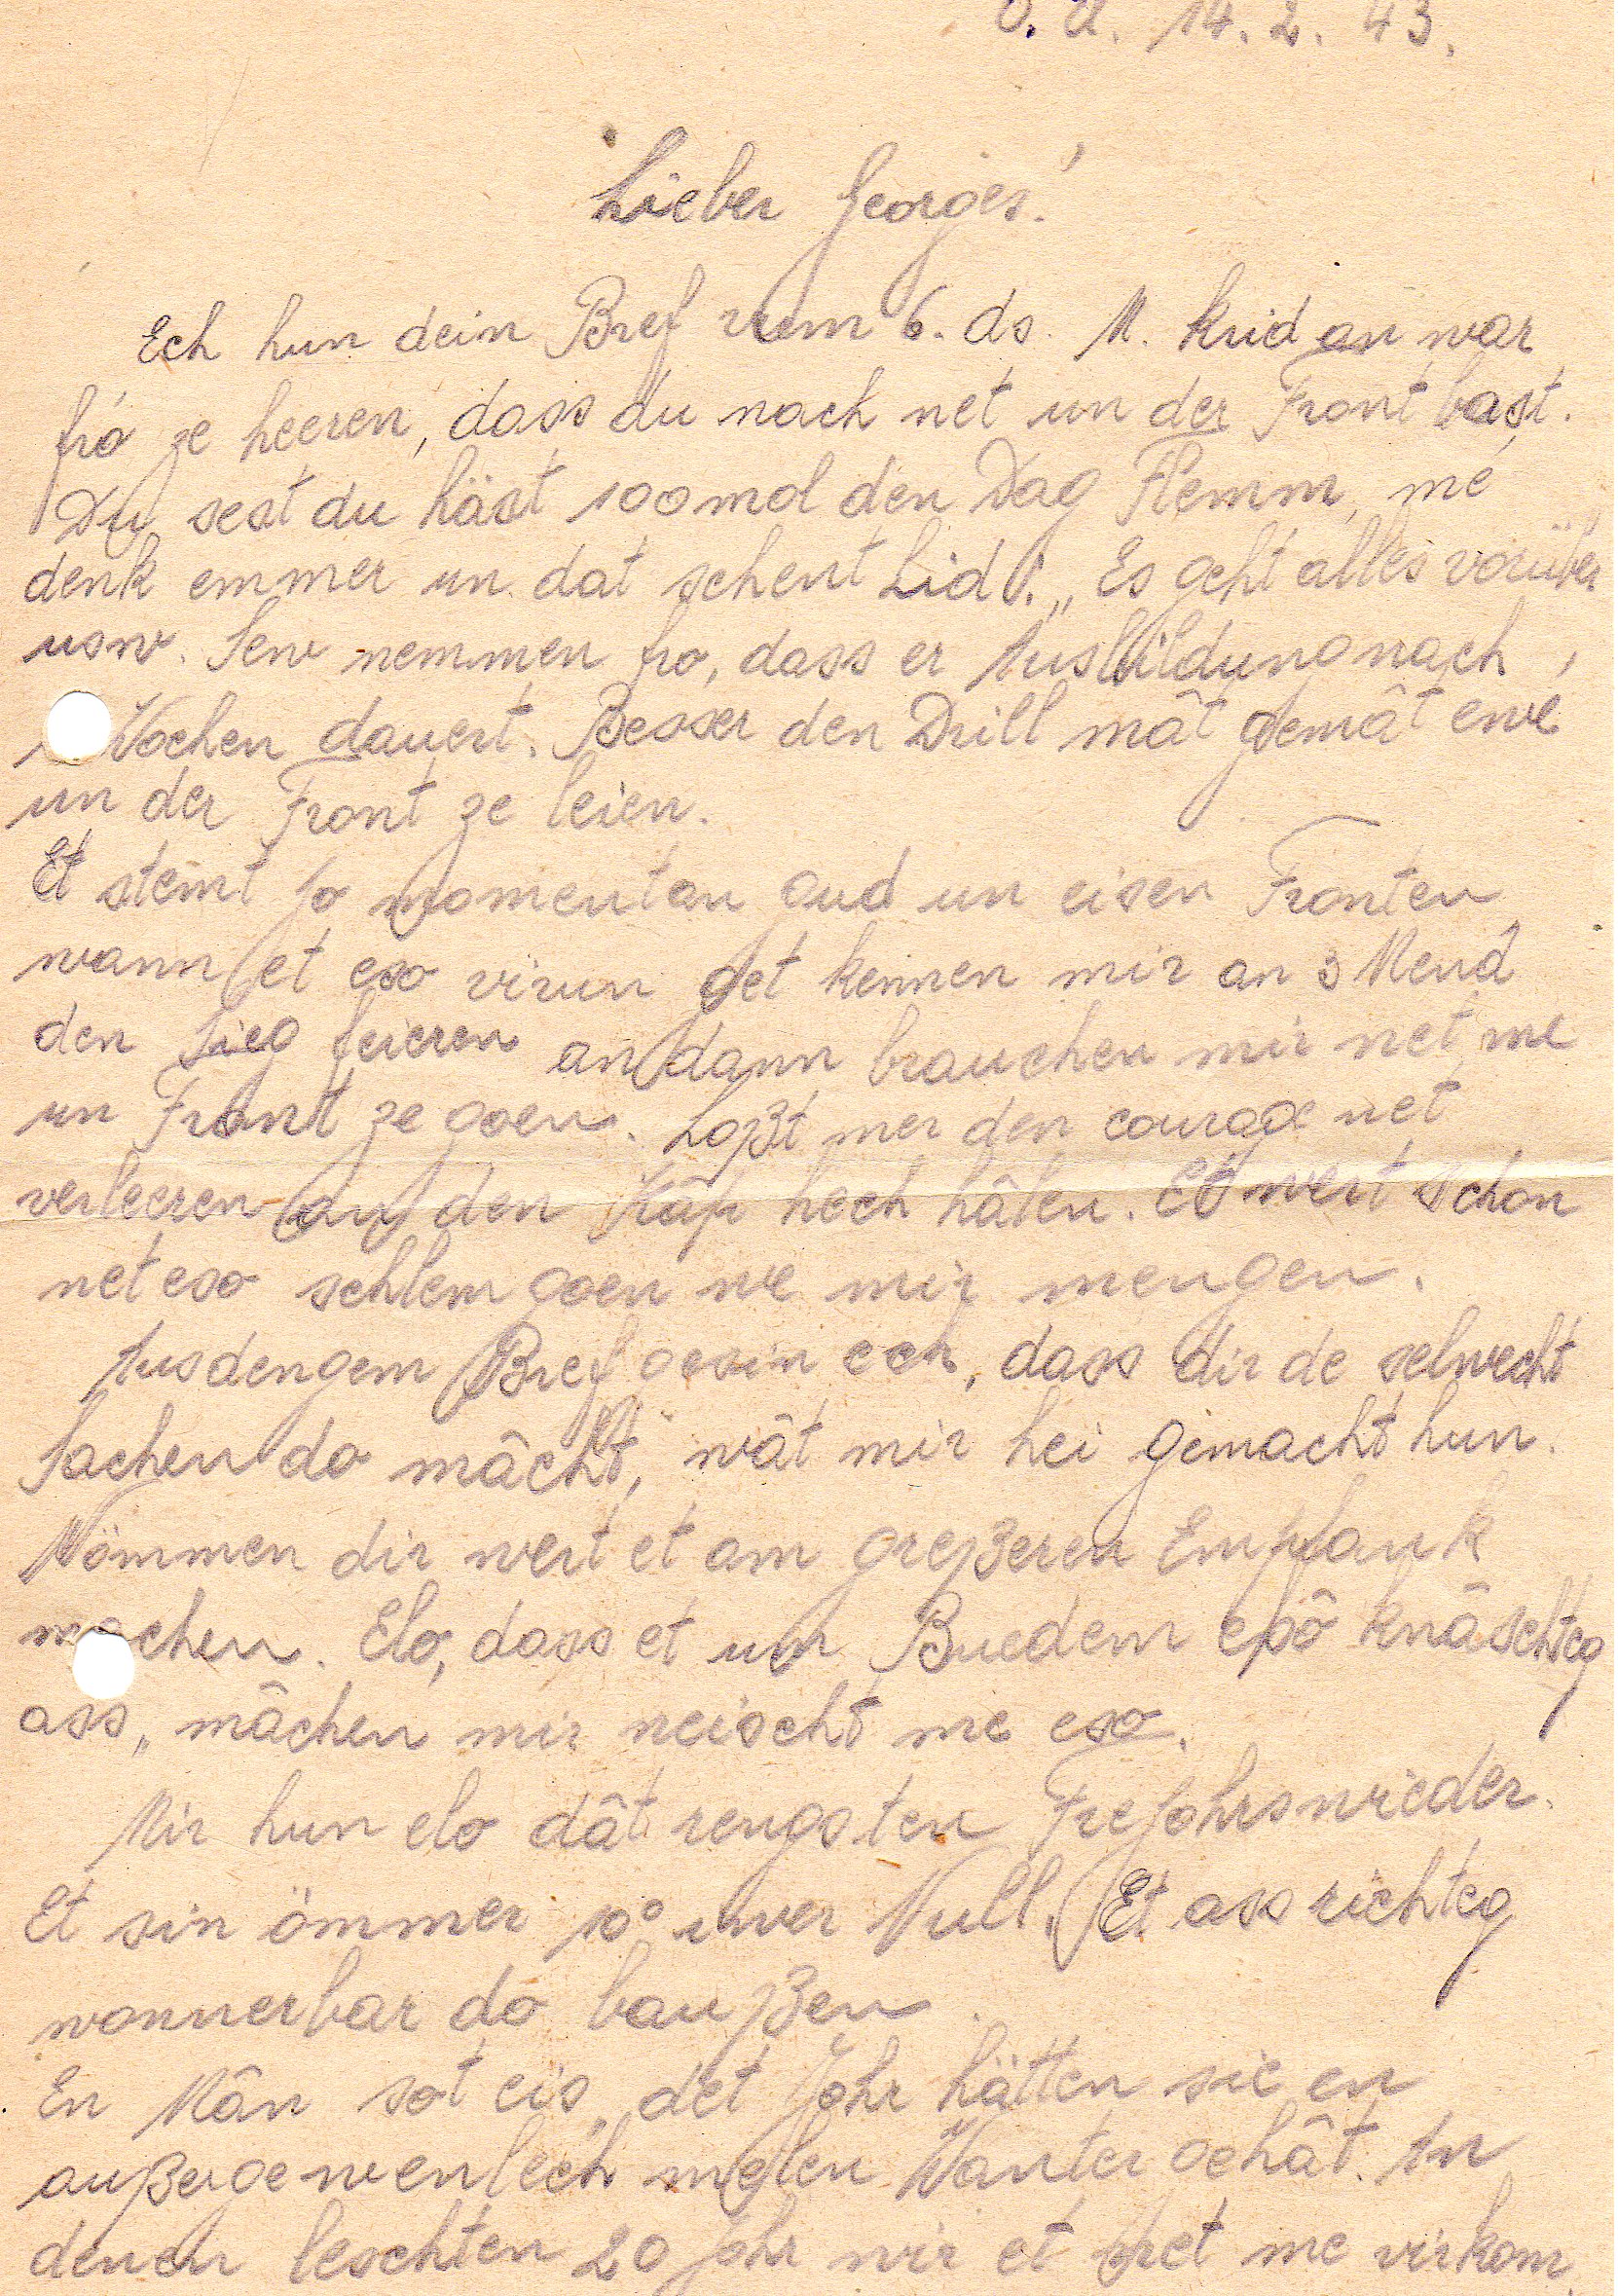 O. U. 14. 2. 43.
Lieber Georges!
Ech hun dein Bref vum 6. ds. M. krid an war
fró ze heeren, dass du nach net un der Front bast.
Du sest du häst 100 mol den Dag Flemm, mé
denk emmer un dat schent Lid: „Es geht alles vorüber
usw. Sew nemmen fro, dass er Ausbildung nach
Wochen dauert. Besser den Drill mât gemât ewé
un der Front ze leien.
Et stemt jo momentan gud un eisen Fronten,
wann et eso virun get kennen mir an 3 Mend
den Sieg feieren an dann brauchen mir net me
un Front ze goen. Loßt mer den courage net
verleeren an den Kâp hech hâlen. Et wert schon
net eso schlem goen we mir mengen.
Aus dengem Bref gesin ech, dass dir de selwecht
Sachen do mâcht, wât mir hei gemacht hun.
Nömmen dir wert et am greßeren Empfank
machen. Elo, dass et um Buedem esô knâschteg
ass, mâchen mir neischt me eso.
Mir hun elo dât rengsten Frejohrswieder.
Et sin ömmer 10° iwer Null. Et ass richteg
wonnerbar do baußen.
En Mân sot eis, dët Johr hätten sie en
außergewenlech melen Wanter gehât. An
denen leschten 20 Johr wir et net me virkom